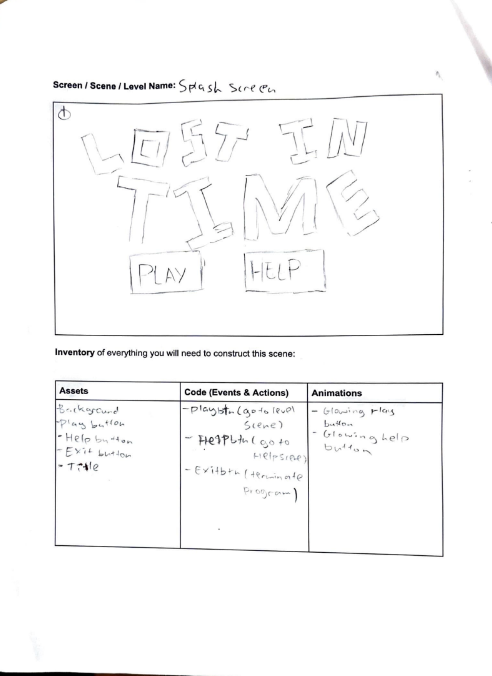 Screen / Scene / Level Name: Splash Screen
LOST IN
TIME
PLAY
HELP
Inventory of everything you will need to construct this scene:
Assets
Background
-Play button
- Help button
- Exit button
- Title
Code (Events & Actions)
-playbtn (go to level
Scene)
- HelPbtn (go to
Helpscene)
- Exitbtn (terminate
Program)
Animations
- Glowing Play
button
- Glowing help
button